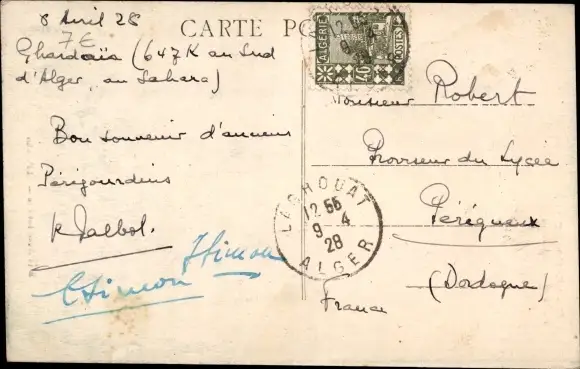 8 Avril 28
7€
Ghardaïa (647K au Sud
d'Alger, au Sahara)
Bon souvenir d'anciens
Périgourdins
Talbot.
HSimon
CSimon
CARTE PO
ALGERIE
POSTES
40
LAGHOUAT
12 55
9 4
28
ALGER
Monsieur Robert
Proviseur du Lycée
Périgueux
(Dordogne)
France